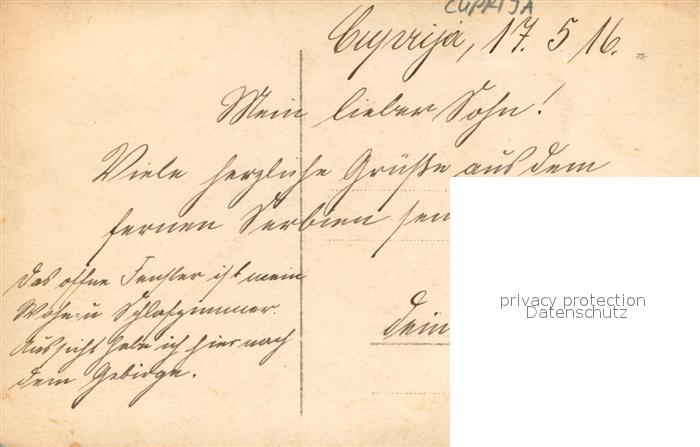 CUPRIJA
Cuprija, 17. 5. 16.
Mein lieber Sohn!
Viele herzliche Grüße aus dem
fernen Serbien sen
Das offne Fenster ist mein
Wohn- u Schlafzimmer.
Aussicht habe ich hier nach
dem Gebirge.
dein
privacy protection
Datenschutz